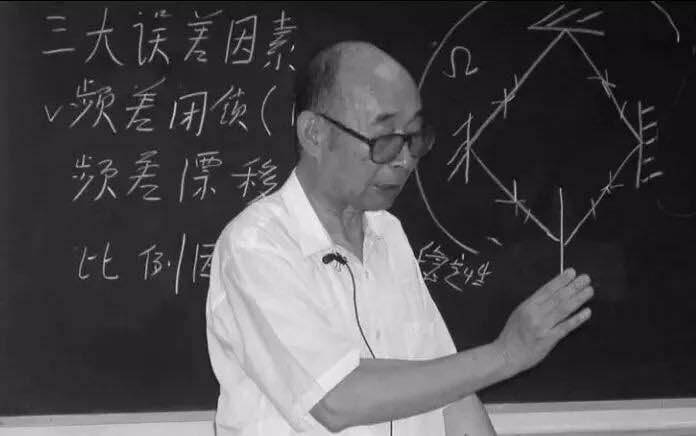 三大误差因素
√频差闭锁(
频差漂移
比例因
Ω